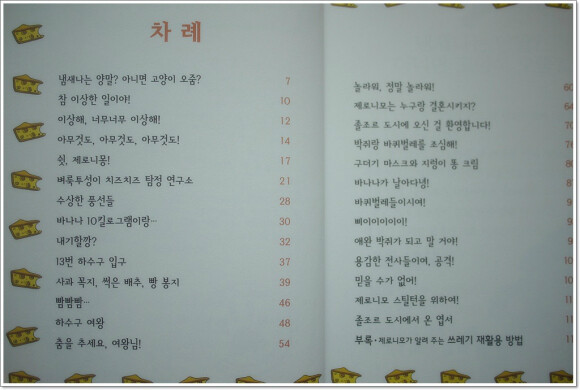 차 례
냄새나는 양말? 아니면 고양이 오줌? 7
참 이상한 일이야! 10
이상해, 너무너무 이상해! 12
아무것도, 아무것도, 아무것도! 14
쉿, 제로니몽! 17
벼룩투성이 치즈치즈 탐정 연구소 21
수상한 풍선들 28
바나나 10킬로그램이랑… 30
내기할깡? 32
13번 하수구 입구 37
사과 꼭지, 썩은 배추, 빵 봉지 39
빰빰빰… 46
하수구 여왕 48
춤을 추세요, 여왕님! 54
놀라워, 정말 놀라워! 60
제로니모는 누구랑 결혼시키지? 64
졸조르 도시에 오신 걸 환영합니다! 70
박쥐랑 바퀴벌레를 조심해! 78
구더기 마스크와 지렁이 똥 크림 80
바나나가 날아다녕! 87
바퀴벌레들이시여! 9
삐이이이이이! 9
애완 박쥐가 되고 말 거야! 9
용감한 전사들이여, 공격! 10
믿을 수가 없어! 10
제로니모 스틸턴을 위하여! 11
졸조르 도시에서 온 엽서 11
부록·제로니모가 알려 주는 쓰레기 재활용 방법 11